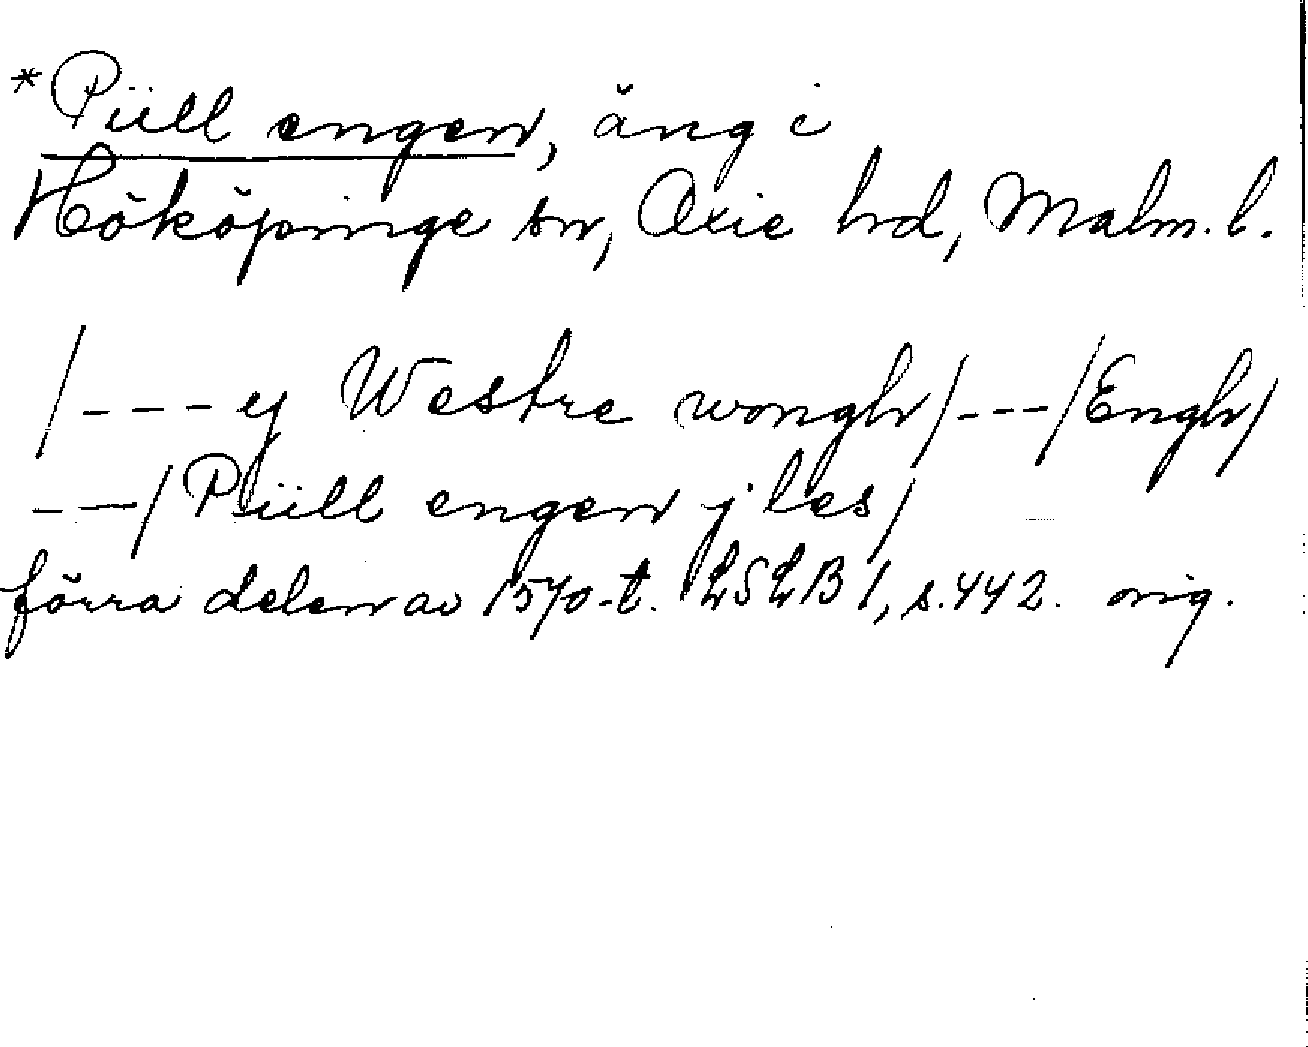 *Püll engen, äng i
Hököpinge sn, Oxie hd, Malm. l.
/---y Westre wongh/---/Engh/
---/Püll engen j les/
förra delen av 1570-t. LSLB 1, s. 442. orig.